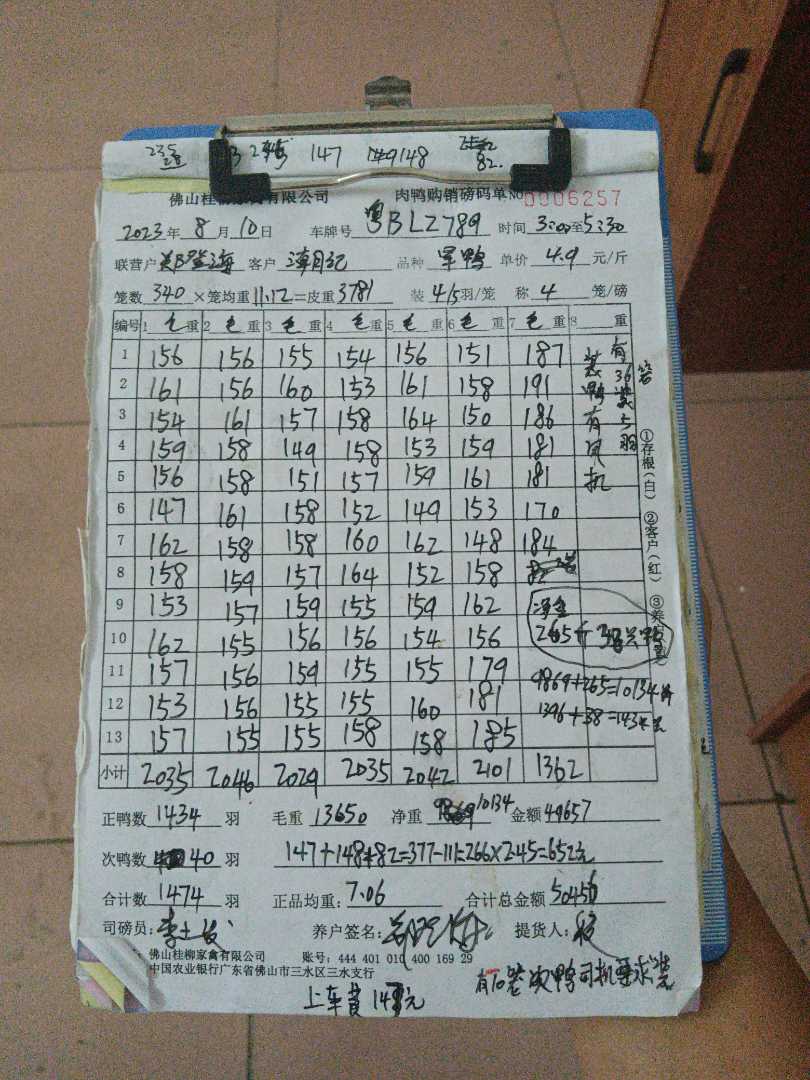 147 148 82.
佛山桂柳家禽有限公司 肉鸭购销磅码单 No 0006257
2023年 8月 10日 车牌号 粤BLZ789 时间 3:00至5:30
联营户 客户 品种 单价 4.9 元/斤
笼数 340 ×笼均重 11.12 =皮重 3781 装 4/5 羽/笼 称 4 笼/磅
编号 1 毛重 2 毛重 3 毛重 4 毛重 5 毛重 6 毛重 7 毛重 8 重
1 156 156 155 154 156 151 187
2 161 156 160 153 161 158 191
3 154 161 157 158 164 150 186
4 159 158 149 158 153 159 181
5 156 158 151 157 159 161 181
6 147 161 158 152 149 153 170
7 162 158 158 160 162 148 184
8 158 159 157 164 152 158
9 153 157 159 155 159 162
10 162 155 156 156 154 156
11 157 156 159 155 155 179
12 153 156 155 155 160 181
13 157 155 155 158 158 185
小计 2035 2046 2029 2035 2042 2101 1362
装鸭有风机
有36笼装5羽
9869+265=10134
1396+38=1434
①存根(白) ②客户(红)
正鸭数 1434 羽 毛重 13650 净重 10134 金额 49657
次鸭数 40 羽 147+148+82=377-111=266×2.45=652元
合计数 1474 羽 正品均重: 7.06 合计总金额
司磅员: 养户签名: 提货人:
佛山桂柳家禽有限公司 账号: 444 401 010 400 169 29
中国农业银行广东省佛山市三水区三水支行
上车费 元
有10笼次鸭司机要求装